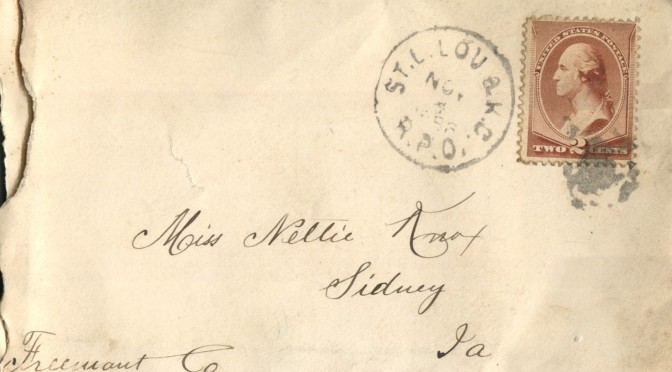 ST. L. LOU & K.C.
NO.
R.P.O.
UNITED STATES POSTAGE
TWO 2 CENTS
Miss Nettie Knox
Sidney
Ia
Freemont Co